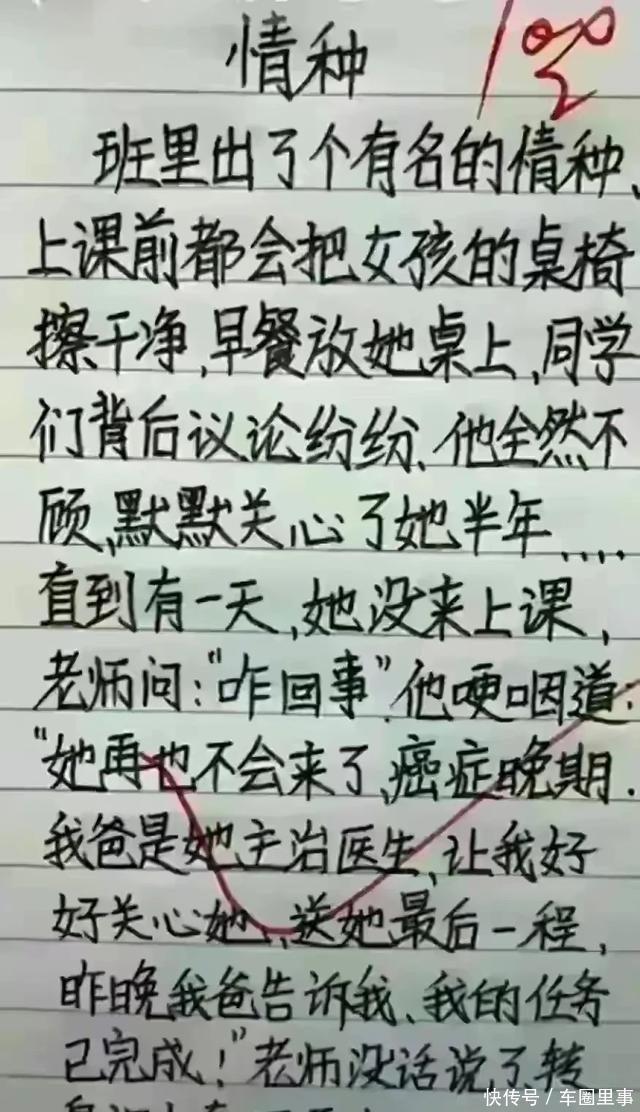 情种
100
班里出了个有名的情种、
上课前都会把女孩的桌椅
擦干净,早餐放她桌上,同学
们背后议论纷纷、他全然不
顾,默默关心了她半年....
直到有一天,她没来上课,
老师问:"咋回事".他哽咽道:
"她再也不会来了,癌症晚期.
我爸是她主治医生,让我好
好关心她,送她最后一程,
昨晚我爸告诉我、我的任务
已完成!"老师没话说了转
快传号/车圈里事